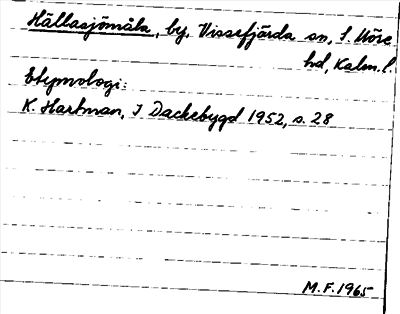 Hällasjömåla, by, Vissefjärda sn, S. Möre
hd, Kalm. l.
Etymologi:
K. Hartman, I Dackebygd 1952, s. 28
M.F. 1965